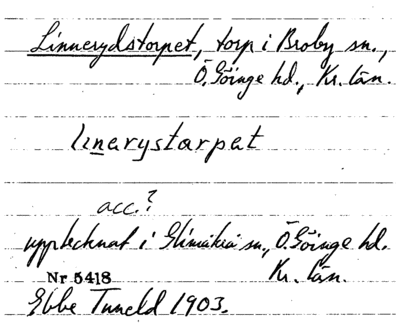 Linnerydstorpet, torp i Broby sn.,
Ö. Göinge hd., Kr. län.
linarystarpet
acc.?
upptecknat i Glimåkra sn., Ö. Göinge hd.
Kr. län.
Nr 5418
Ebbe Tuneld 1903.